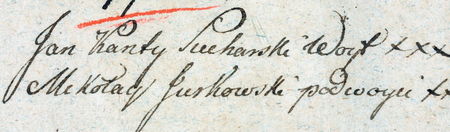 Jan Kanty Sucharski Woyt xxx
Mikołay Jurkowski podwoyci xx